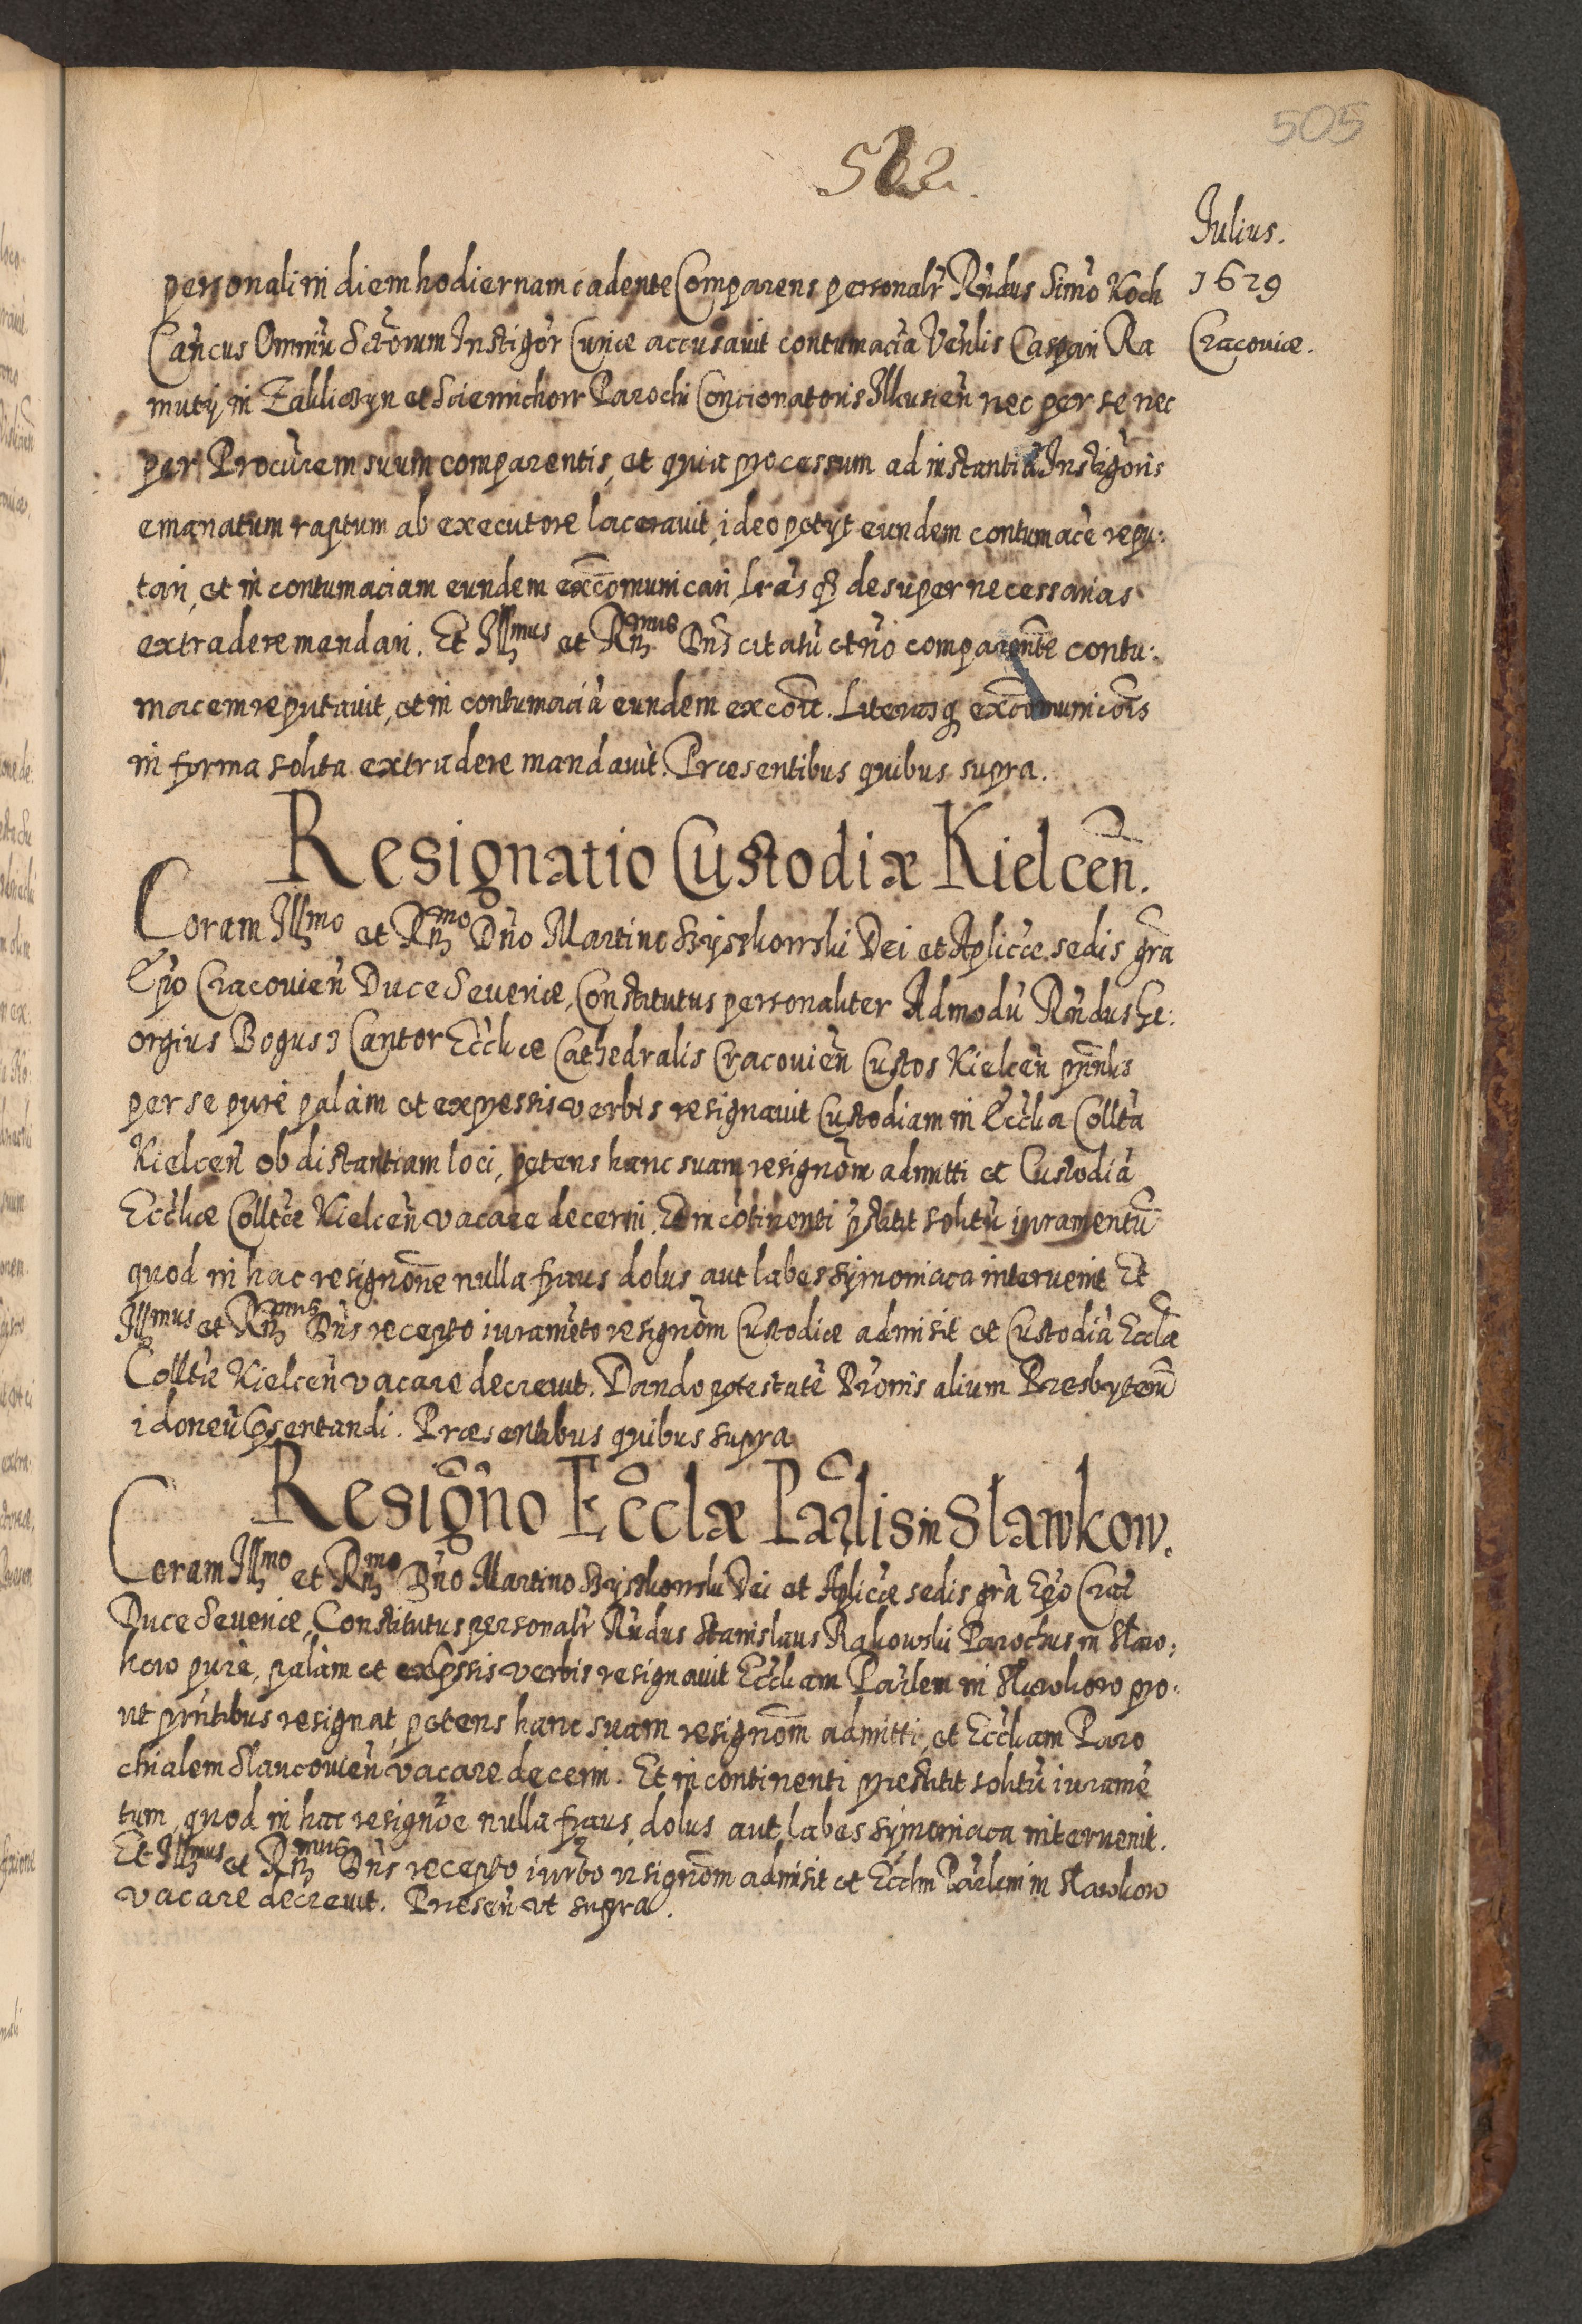 505
522.
Julius.
1629
Cracoviæ.
personali in diem hodiernam cadente Comparens personalr Rndus Simo Koch
Cancus Omniu Sctorum Instigor Curiæ accusavit contumacia Venlis Caspari Ra
mutij in Zakliczyn et Sciennichow Parochi Concionatoris Ilkusien nec per se nec
per Procurem suum comparentis, et quia processum ad instantia Instigoris
emanatum raptum ab executore laceravit, ideo petÿt eundem contumace repu:
tari, et in contumaciam eundem excomunicari, Lras q desuper necessarias
extradere mandari. Et Illmus et Rnmus Dns citatu et no comparente contu:
macem reputavit, et in contumacia eundem excoit. Literasq excomunicois
in forma solita extradere mandavit. Præsentibus quibus supra.
Resignatio Custodiæ Kielcen.
Coram Illmo et Rnmo Dno Martino Szyszkowski Dei et Aplicæ sedis gra
Epo Cracovien Duce Severiæ, Constitutus personaliter Admodu Rndus Ge:
orgius Bogusz Cantor Eccliæ Cathedralis Cracovien Custos Kielcen
per se purè palàm et expressis verbis resignavit Custodiam in Ecclia Collta
Kielcen ob distantiam loci, petens hanc suam resignom admitti et Custodia
Eccliæ Colltæ Kielcen vacare decerni. Et in cotinenti pstitit solitu iuramentu
quod in hac resignone nulla fraus dolus aut labes symoniaca intervenit Et
Illmus et Rnmus Dns recepto iurameto resignom Custodiæ admisit et Custodia Ecclæ
Colltæ Kielcen vacare decrevit. Dando potestate Pronis alium Presbyteru
idoneu psentandi. Præsentibus quibus supra
Resigno Ecclæ Parlis in Slawkow.
Coram Illmo et Rnmo Dno Martino Szyszkowski Dei et Aplicæ sedis gra Epo Crac
Duce Severiæ, Constitutus personalr Rndus Stanislaus Rakowski Parochus in Slaw:
kow purè, palàm et expssis verbis resignavit Eccliam Parlem in Slawkow pro:
ut prntibus resignat, petens hanc suam resignom admitti, et Eccliam Paro
chialem Slaucovien vacare decerni. Et in continenti præstitit solitu iurame
tum, quod in hac resignoe nulla fraus, dolus aut labes symoniaca intervenit.
Et Illmus et Rnmus Dns recepto iurto resignom admisit et Ecclm Parlem in Slawkow
vacare decrevit. Præsen ut supra.